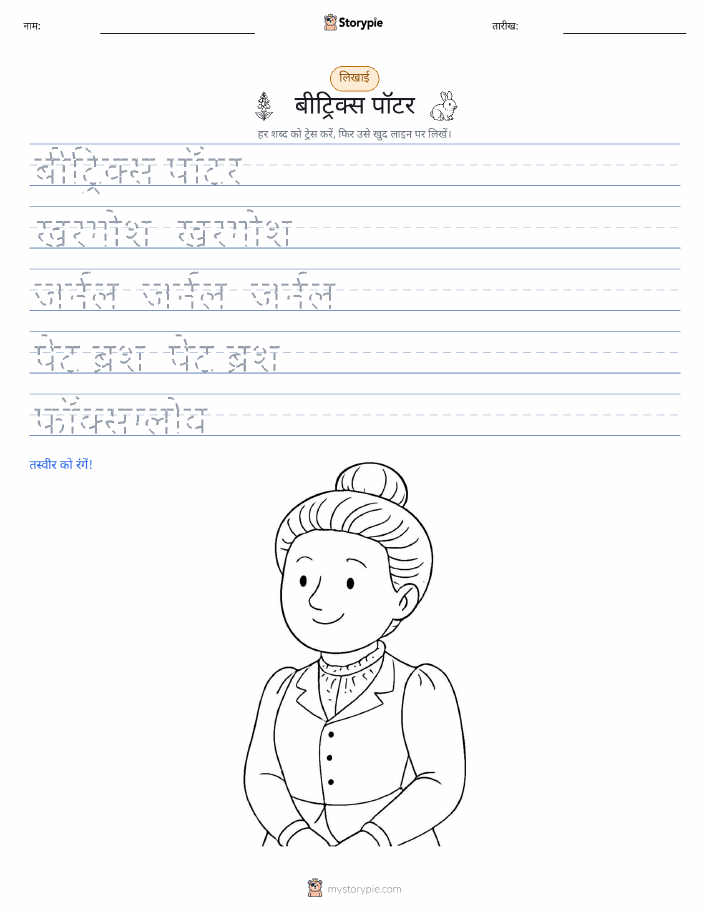 नाम:
Storypie
तारीख:
लिखाई
बीट्रिक्स पॉटर
हर शब्द को ट्रेस करें, फिर उसे खुद लाइन पर लिखें।
बीट्रिक्स पॉटर
खरगोश खरगोश
जर्नल जर्नल जर्नल
पेंट ब्रश पेंट ब्रश
फॉक्सग्लोव
तस्वीर को रंगें!
mystorypie.com